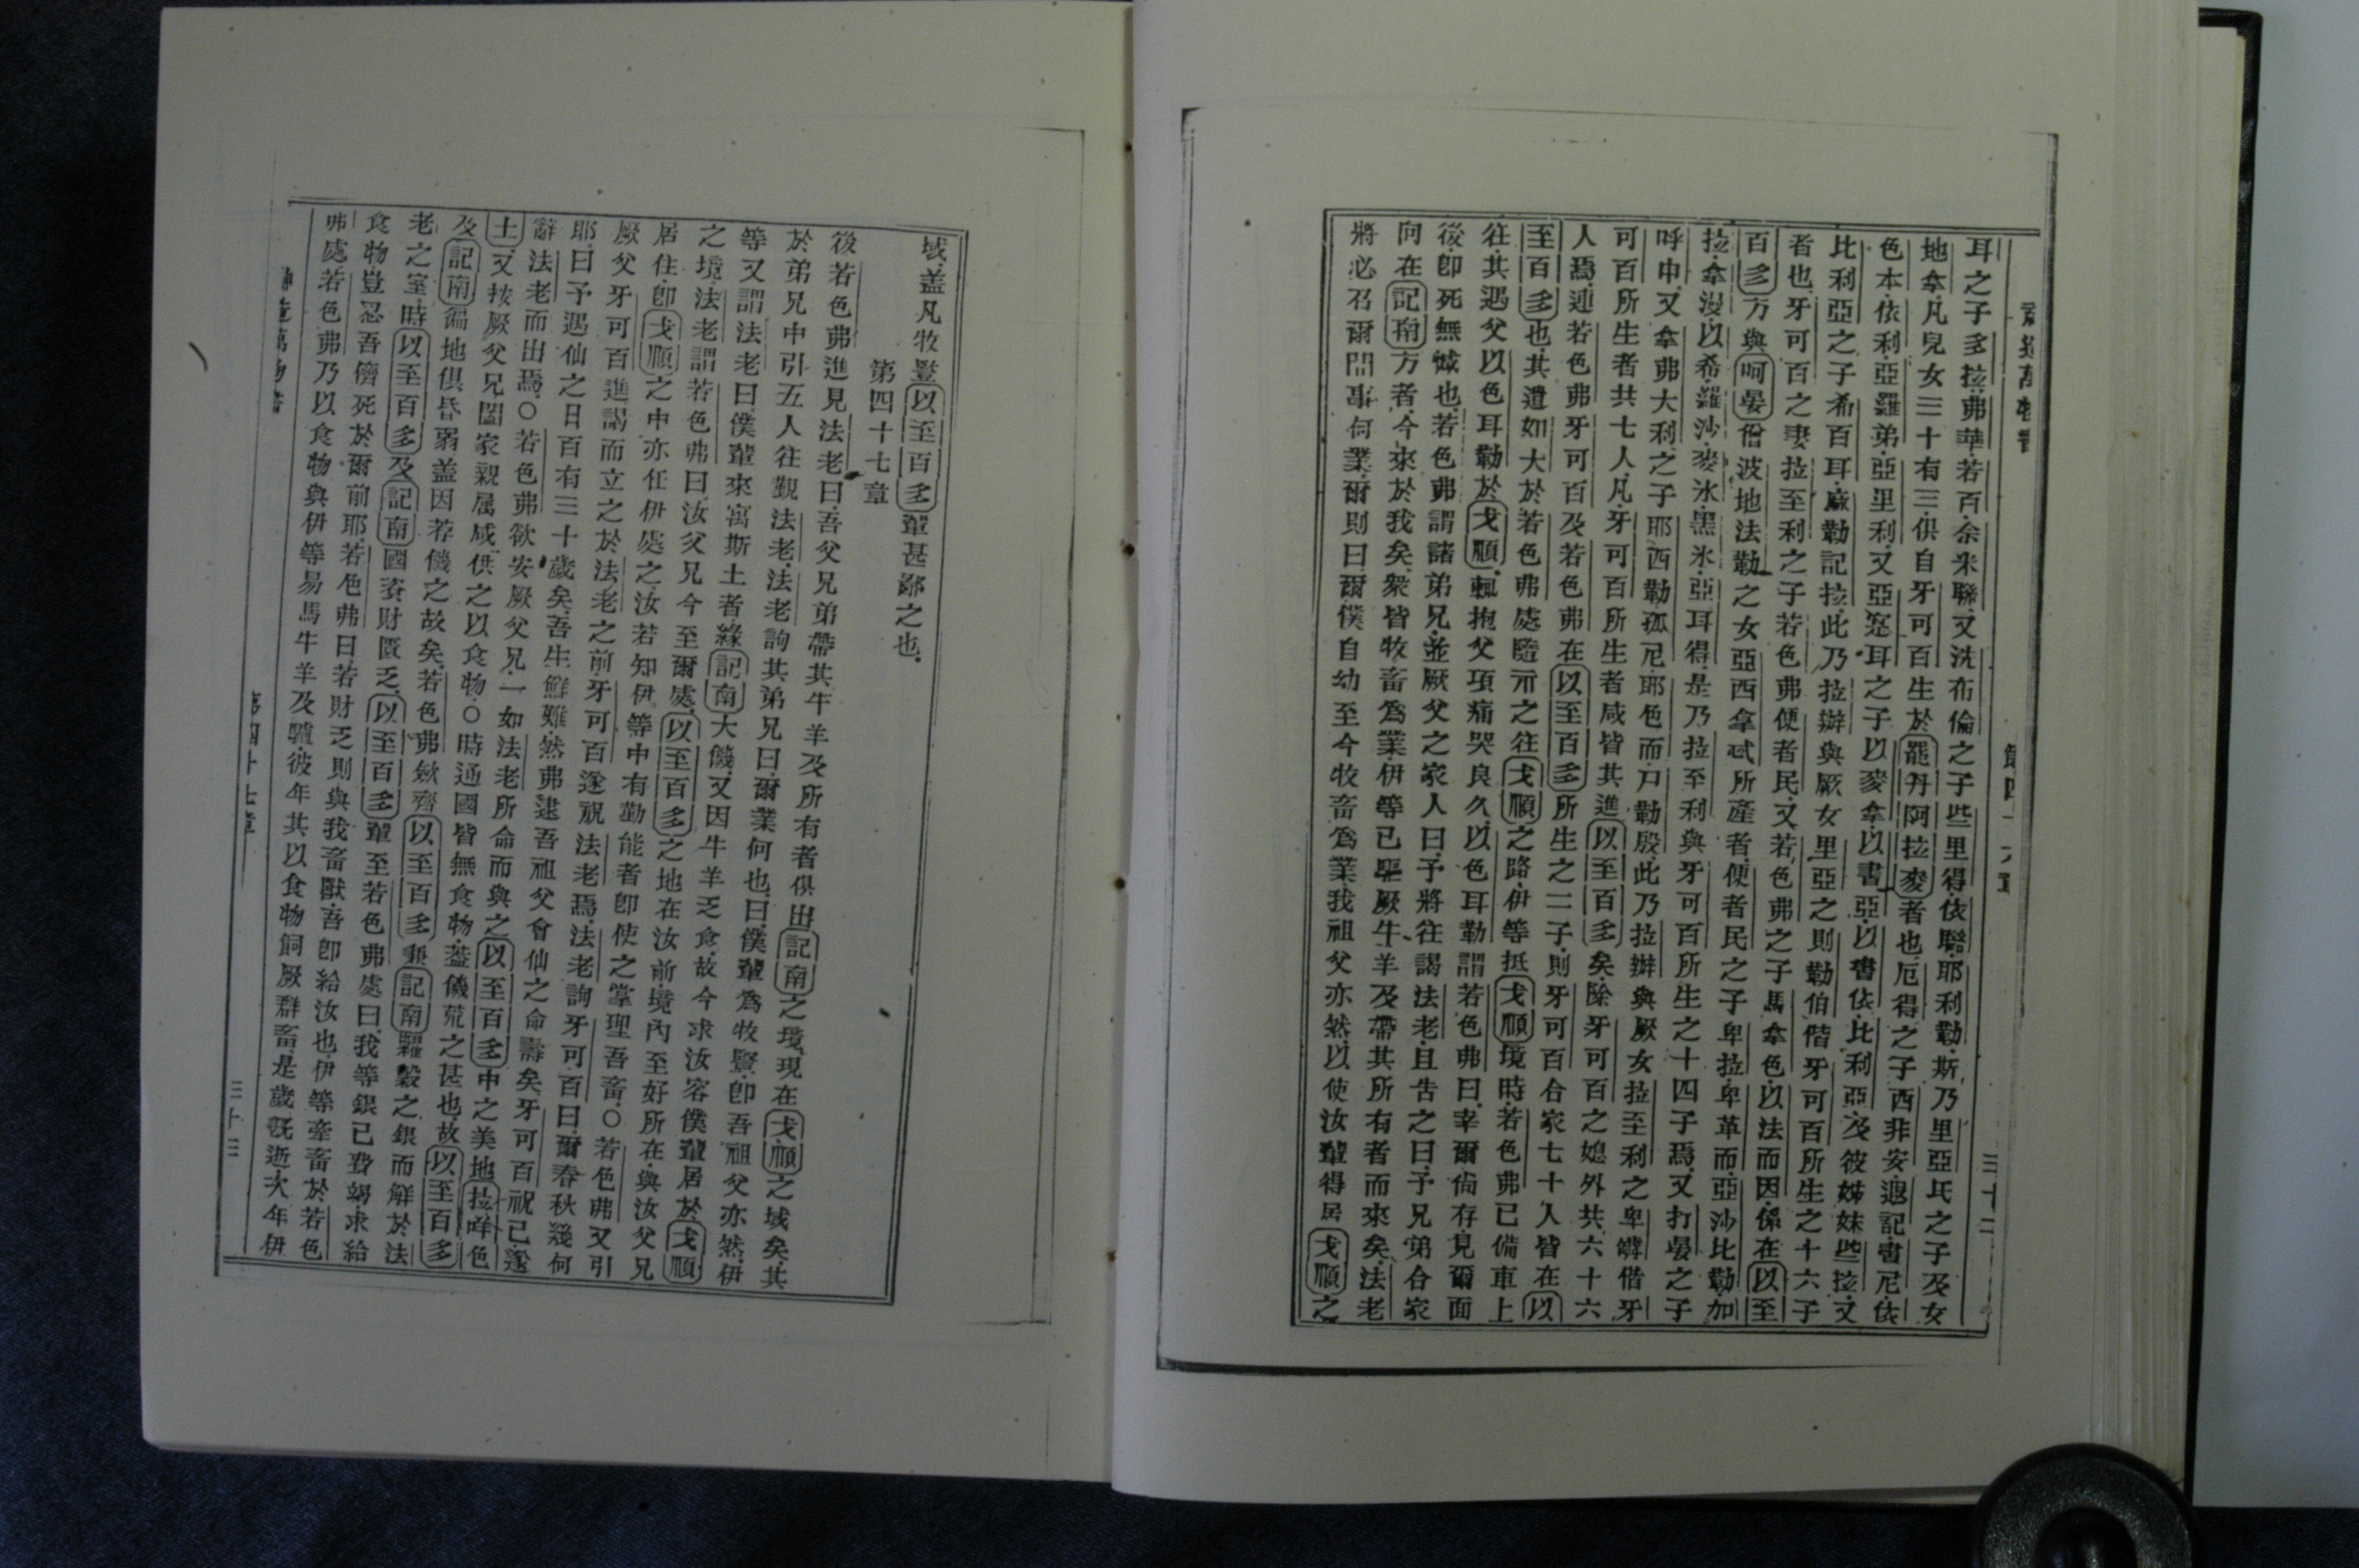 神造萬物書
第四十六章
三十二
耳之子多拉弗華若百佘米聯又洗布倫之子些里得依聯耶利勒斯乃里亞氏之子及女
地拿凡皃女三十有三俱自牙可百生於罷丹阿拉麥者也厄得之子西非安記書尼依
色本依利亞羅弟亞里利又亞寔耳之子以麥拿以書亞以書依比利亞及彼姊妹些拉又
比利亞之子希百耳麻勒記拉此乃拉辦與厥女里亞之則勒伯偕牙可百所生之十六子
者也牙可百之妻拉至利之子若色弗便者民又若色弗之子馬拿色以法而因係在以至
百多方與呵晏僧波地法勒之女亞西拿忒所產者便者民之子卑拉卑革而亞沙比勒加
拉拿漫以希羅沙麥氷黑氷亞耳得是乃拉至利與牙可百所生之十四子焉又打晏之子
呼申又拿弗大利之子耶西勒孤尼耶色而尸勒殷此乃拉辦與厥女拉至利之卑罅偕牙
可百所生者共七人凡牙可百所生者咸皆其進以至百多矣除牙可百之媳外共六十六
人焉連若色弗牙可百及若色弗在以至百多所生之二子則牙可百合家七十人皆在以
至百多也其遣如大於若色弗處隨示之往戈順之路伊等抵戈順境時若色弗已備車上
往其遇父以色耳勒於戈順輒抱父項痛哭良久以色耳勒謂若色弗曰幸爾尙存見爾面
後卽死無憾也若色弗謂諸弟兄並厥父之家人曰予將往謁法老且告之曰予兄弟合家
向在記南方者今來於我矣衆皆牧畜爲業伊等已驅厥牛羊及帶其所有者而來矣法老
將必召爾問事何業爾則曰爾僕自幼至今牧畜爲業我祖父亦然以使汝輩得居戈順之
域蓋凡牧豎以至百多輩甚鄙之也
第四十七章
後若色弗進見法老曰吾父兄弟帶其牛羊及所有者俱出記南之境現在戈順之域矣其
於弟兄中引五人往覲法老法老詢其弟兄曰爾業何也曰僕輩爲牧豎卽吾祖父亦然伊
等又謂法老曰僕輩來寓斯土者緣記南大饑又因牛羊乏食故今求汝容僕輩居於戈順
之境法老謂若色弗曰汝父兄今至爾處以至百多之地在汝前境內至好所在與汝父兄
居住卽戈順之中亦任伊處之汝若知伊等中有勤能者卽使之掌理吾畜○若色弗又引
厥父牙可百進謁而立之於法老之前牙可百遂祝法老焉法老詢牙可百曰爾春秋幾何
耶曰予遇仙之日百有三十歲矣吾生鮮難然弗逮吾祖父會仙之命壽矣牙可百祝已遂
辭法老而出焉○若色弗欲安厥父兄一如法老所命而與之以至百多中之美地拉咩色
土又按厥父兄闔家親属咸供之以食物○時通國皆無食物蓋饑荒之甚也故以至百多
及記南徧地俱昏弱蓋因荐饑之故矣若色弗斂齊以至百多兼記南糴糓之銀而解於法
老之室時以至百多及記南國賚財匱乏以至百多輩至若色弗處曰我等銀已費竭求給
食物豈忍吾儕死於爾前耶若色弗曰若財乏則與我畜獸吾卽給汝也伊等牽畜於若色
弗處若色弗乃以食物與伊等易馬牛羊及驢彼年其以食物飼厥群畜是歲既逝次年伊
神造萬物書
第四十七章
三十三